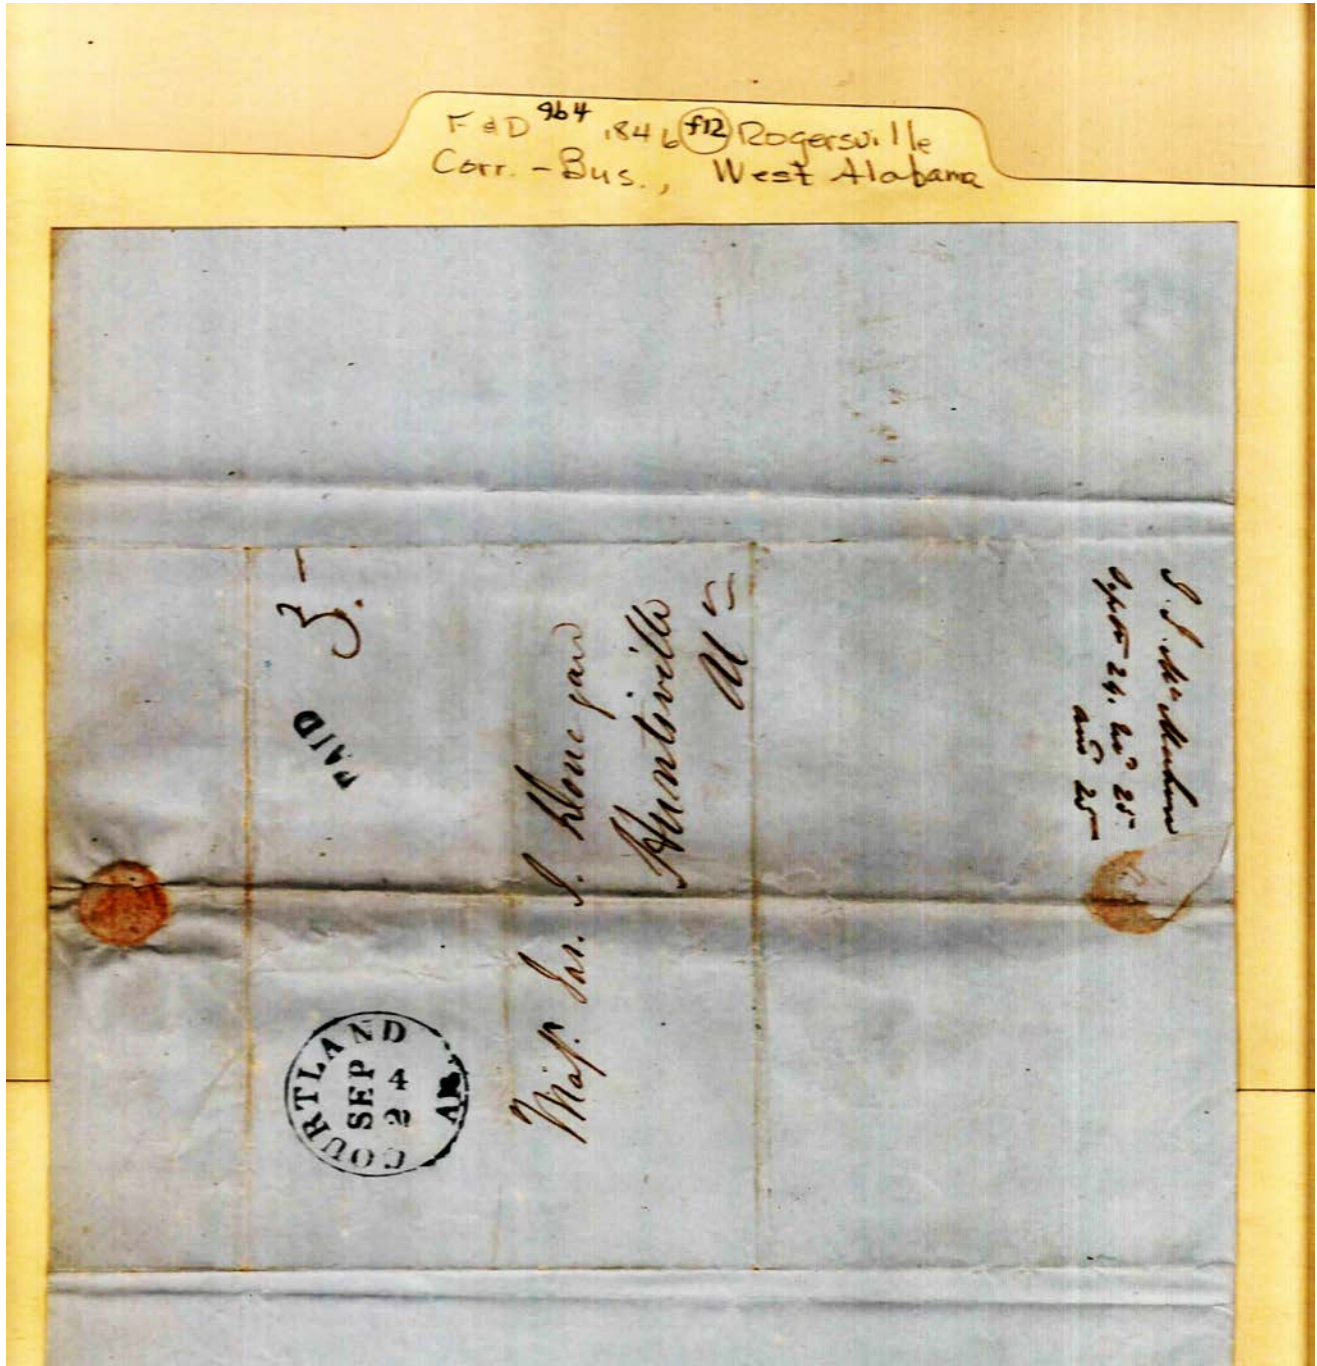 F&D 9b4 1846 f12 Rogersville
Corr. - Bus., West Alabama
PAID 3.
COURTLAND
SEP
24
AL.
Maj. Jas. J. Donegan
Huntsville
Al
J. J. McMahon
Septr 24. 25
and 25